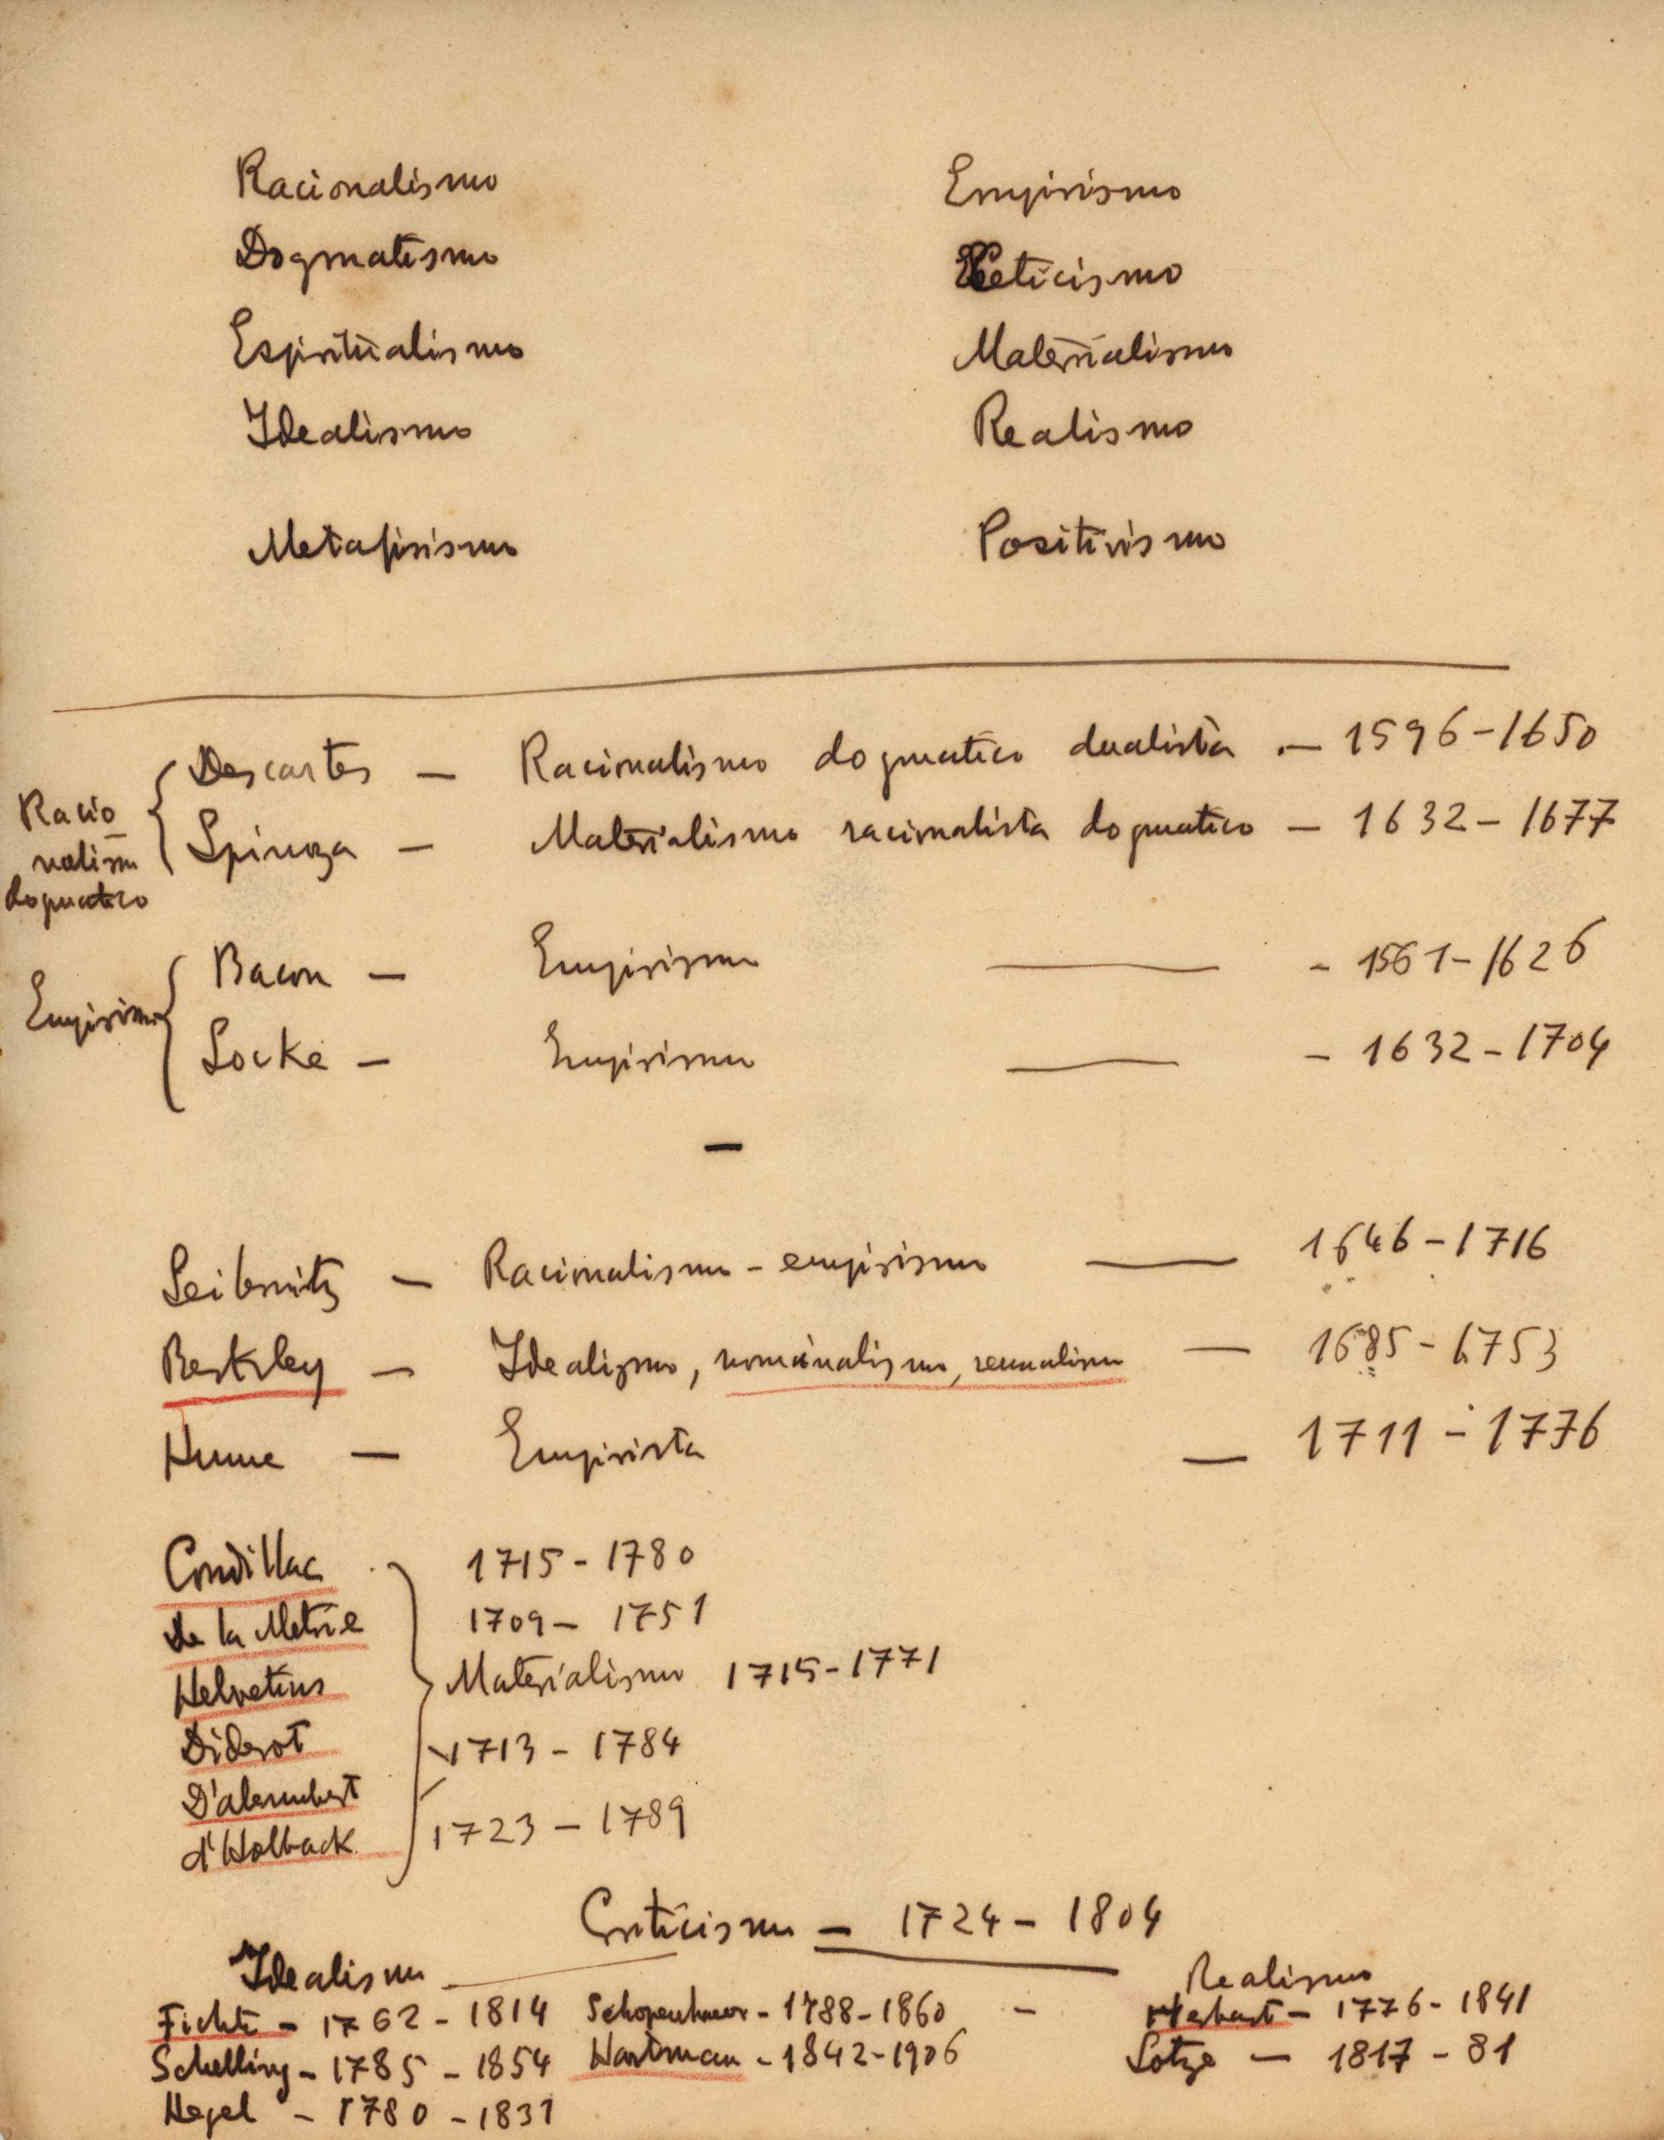 Racionalismo Empirismo
Dogmatismo Ceticismo
Espiritualismo Materialismo
Idealismo Realismo
Metafisismo Positivismo
Descartes — Racionalismo dogmatico dualista — 1596-1650
Racio
Spinoza — Materialismo racionalista dogmatico — 1632-1677
nalismo
dogmatico
Bacon — Empirismo — - 1561-1626
Empirismo
Locke — Empirismo — - 1632-1704
—
Leibnitz — Racionalismo - empirismo — 1646-1716
Berkley — Idealismo, nominalismo, sensualismo — 1685-1753
Hume — Empirista — 1711-1776
Condillac 1715-1780
De la Metrie 1709-1751
Helvetius Materialismo 1715-1771
Diderot 1713-1784
D'alembert
d'Holback 1723-1789
Criticismo — 1724-1804
Idealismo Realismo
Fichte - 1762-1814 Schopenhauer - 1788-1860 - Herbart - 1776-1841
Schelling - 1785-1854 Hartman - 1842-1906 Lotze — 1817-81
Hegel - 1780-1831